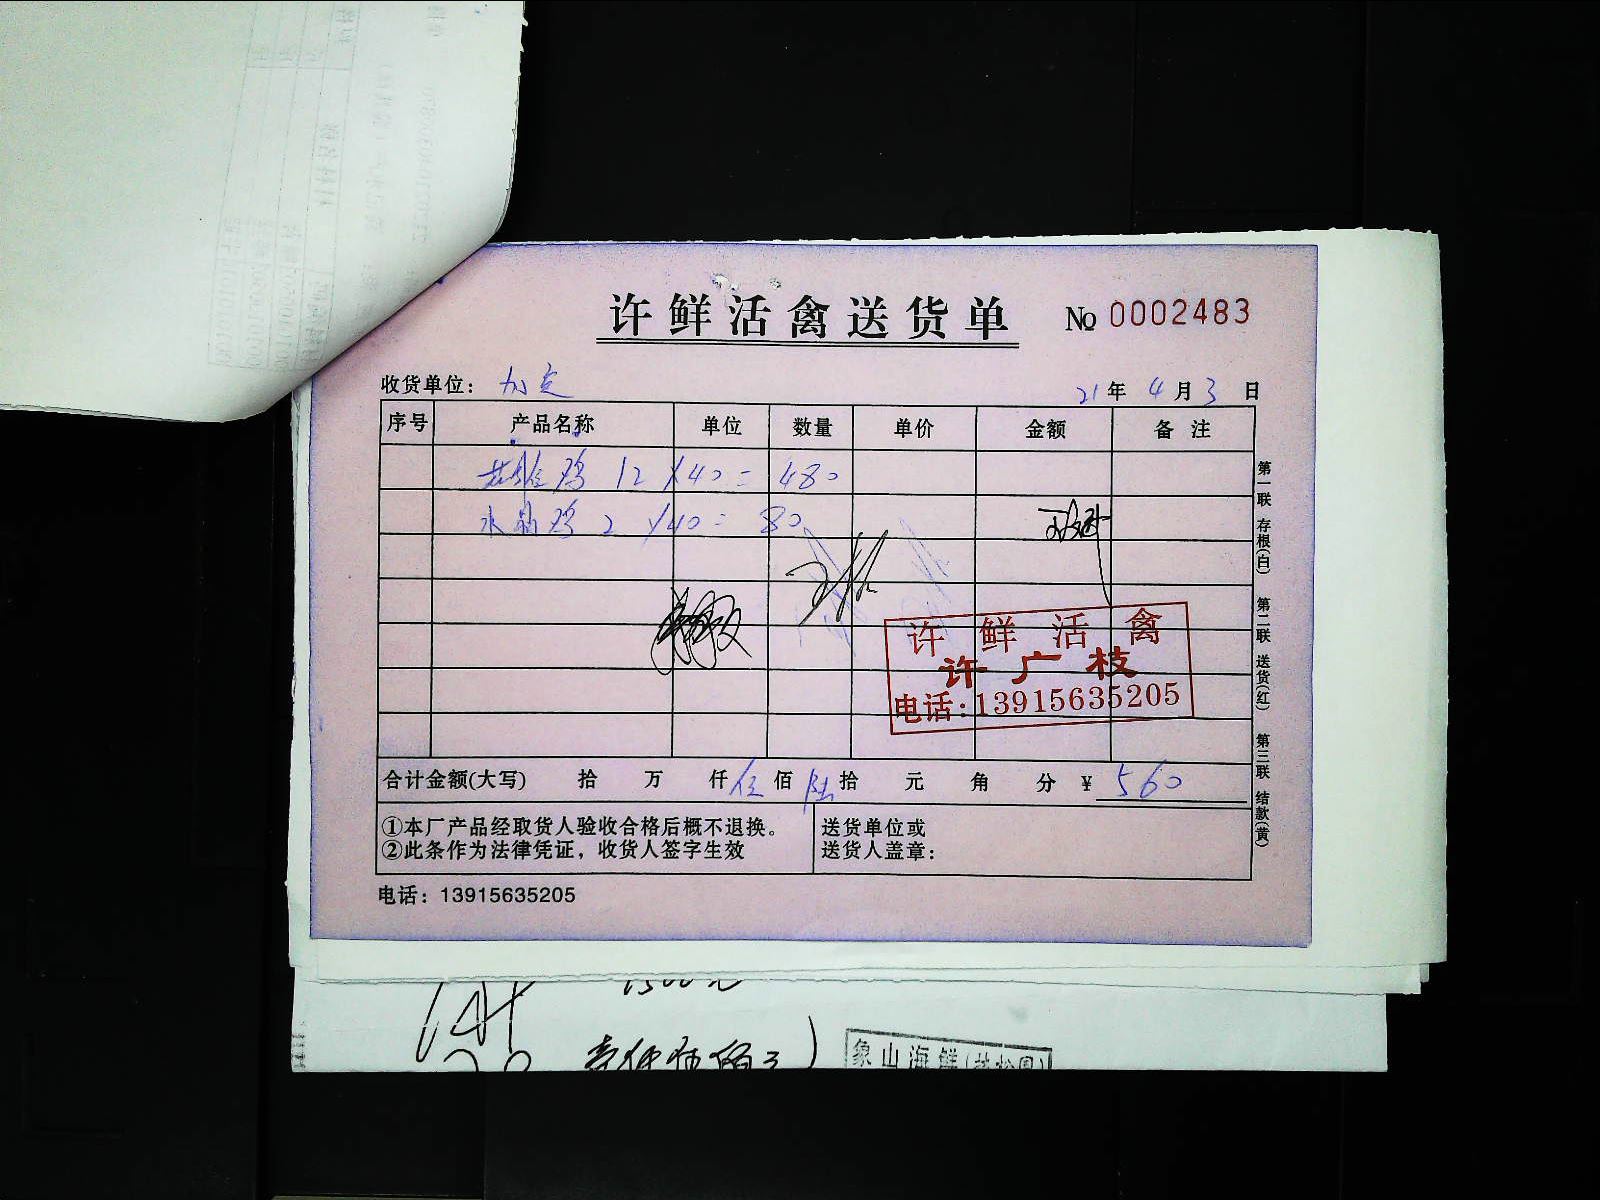 许鲜活禽送货单 № 0002483
收货单位：
21年 4月 3日
序号 产品名称 单位 数量 单价 金额 备注
鸡 12 ×40= 480
水晶鸡 2 ×40= 80
许鲜活禽
许广枝
电话:13915635205
合计金额(大写) 拾 万 仟 伍佰 陆拾 元 角 分 ¥ 560
①本厂产品经取货人验收合格后概不退换。
②此条作为法律凭证，收货人签字生效
送货单位或
送货人盖章：
电话：13915635205
第一联 存根(白) 第二联 送货(红) 第三联 结款(黄)
1500元
象山海鲜